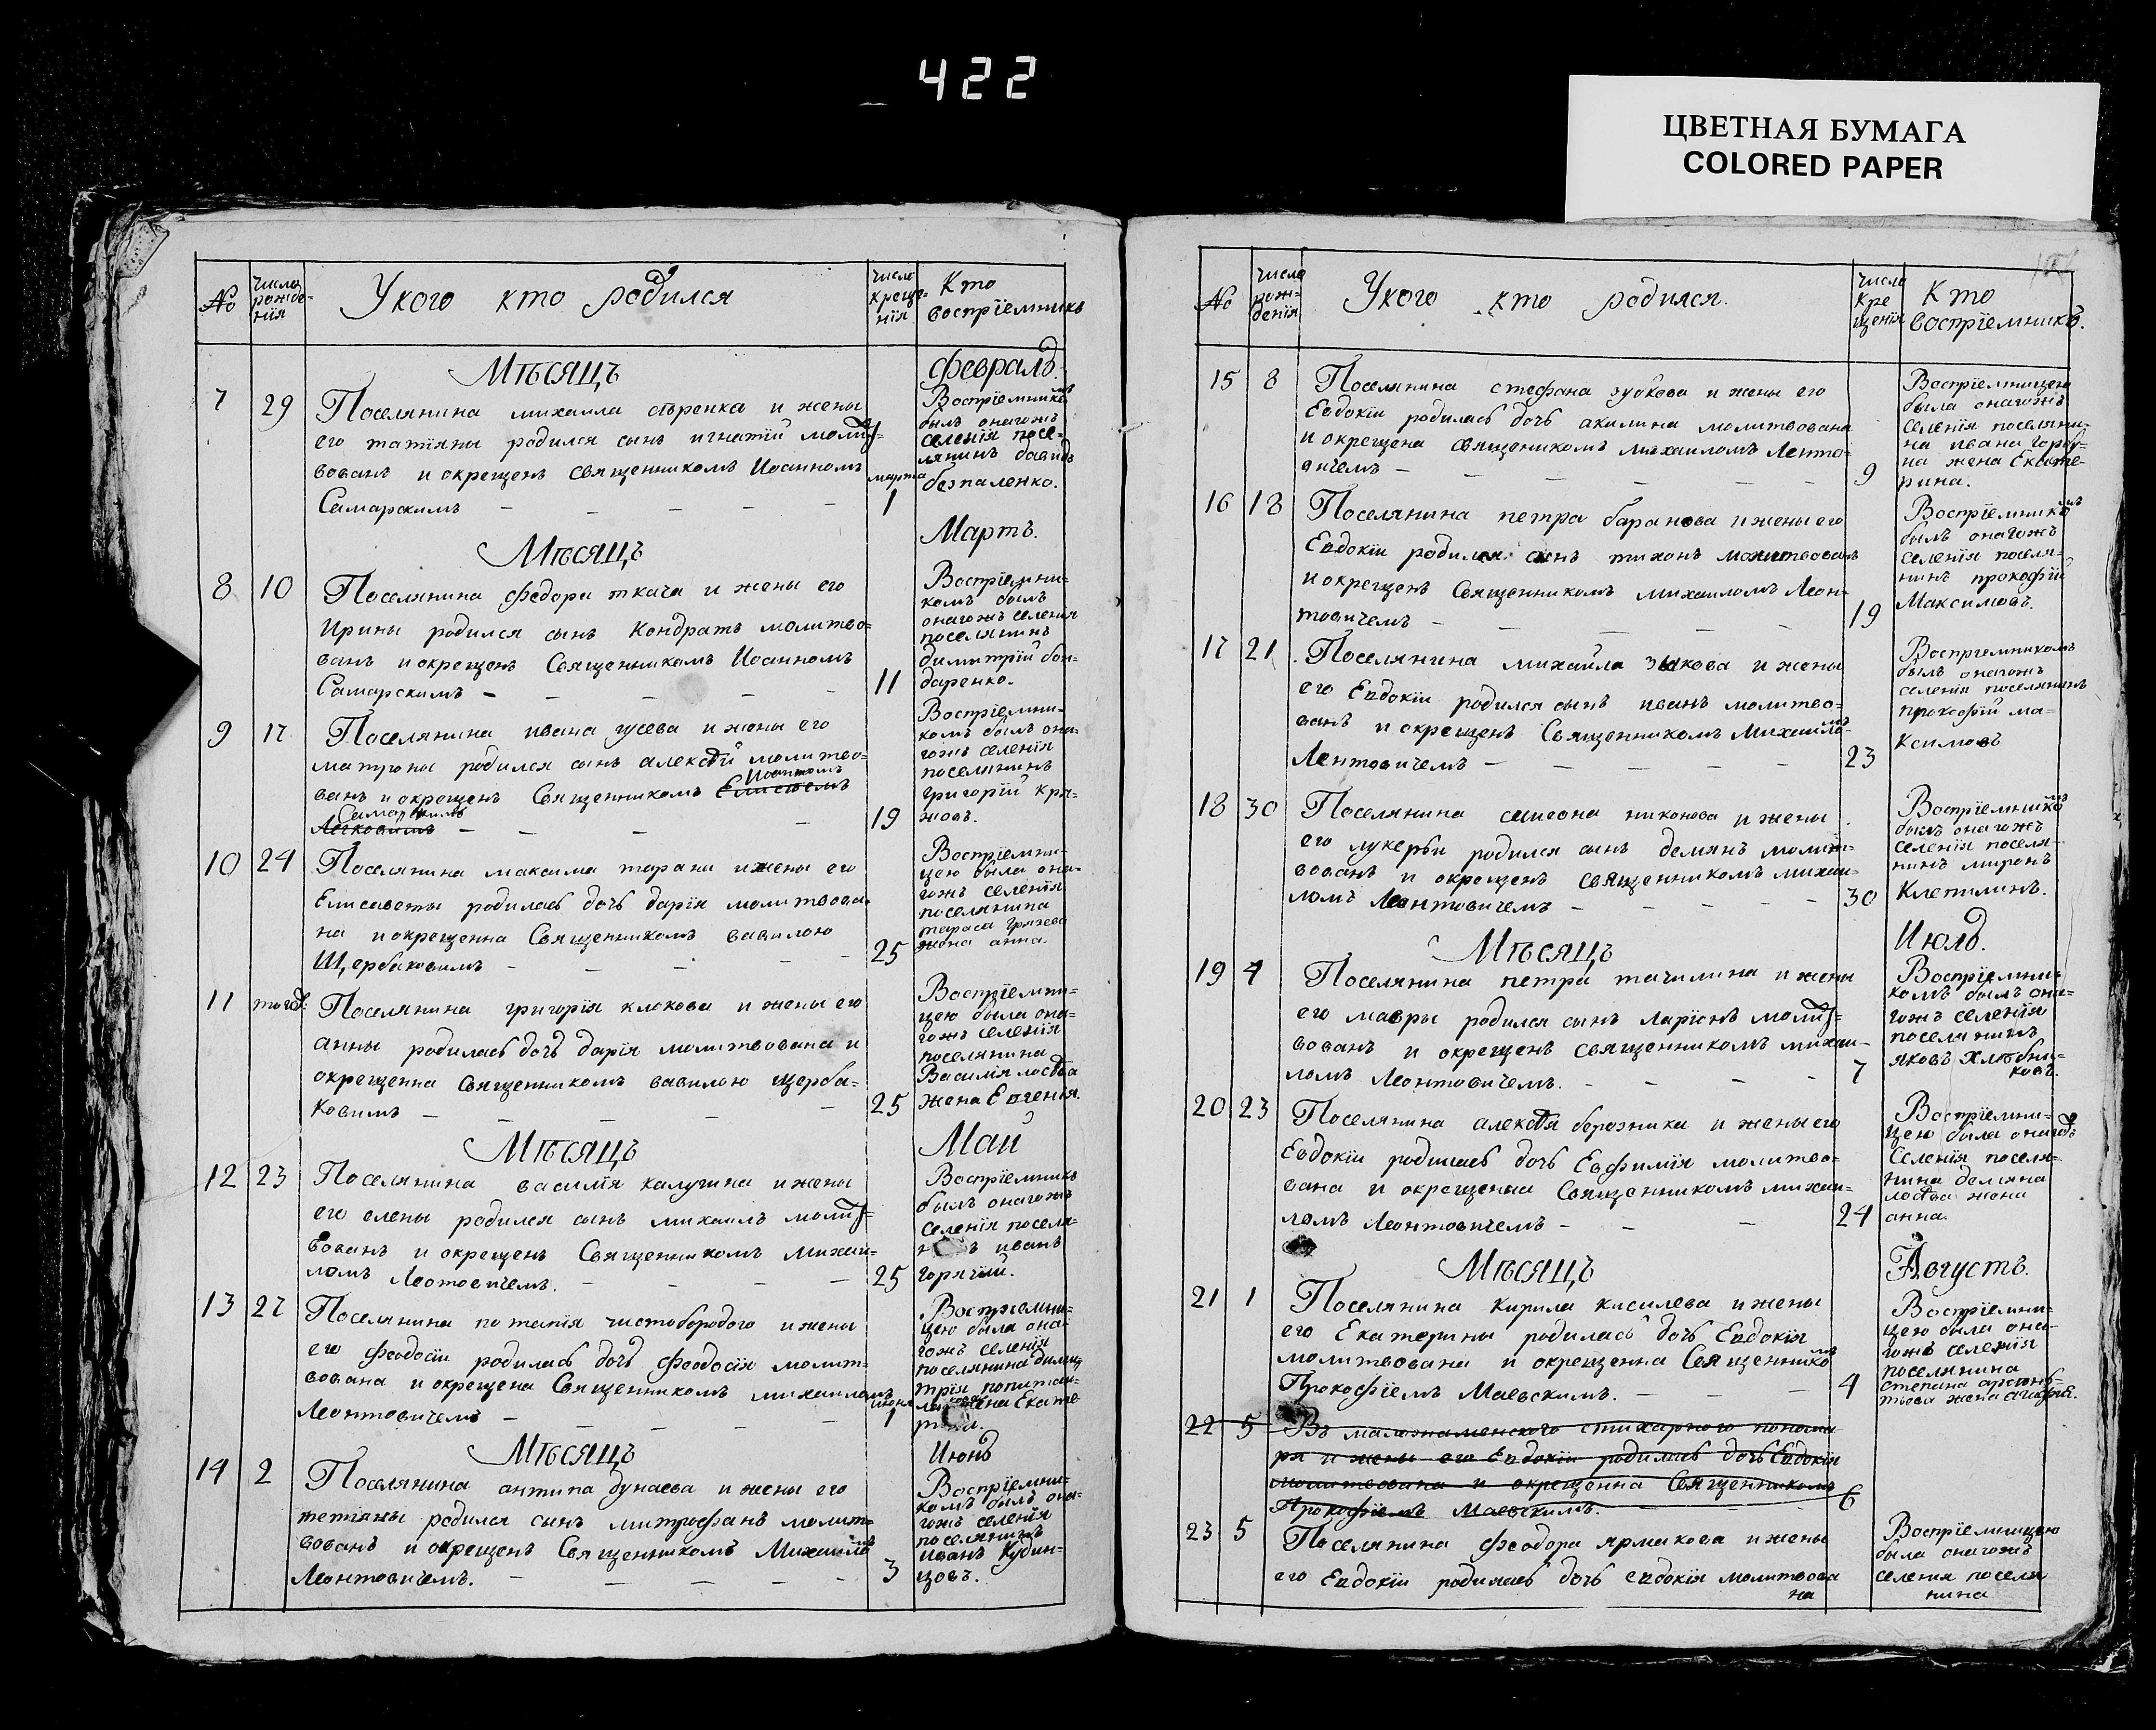 422
ЦВЕТНАЯ БУМАГА
COLORED PAPER
№
Числа рожде-
нія
У кого кто родился
Числа
креще-
нія
Кто
воспріемникъ
Мѣсяцъ
февраль
7
29
Поселянина михаила сѣренка и жены
его татіяны родился сынъ игнатій молит-
вованъ и окрещенъ священникомъ Иоанномъ
Самарскимъ
марта
1
Воспріемникомъ
былъ онагожъ
селенія посе-
лянинъ давидъ
безпаленко.
Мѣсяцъ
Мартъ.
8
10
Поселянина федора ткача и жены его
Ирины родился сынъ Кондратъ молитво-
ванъ и окрещенъ Священникомъ Иоанномъ
Самарскимъ
11
Воспріемни-
комъ былъ
онагожъ селенія
поселянинъ
димитрій бон-
даренко.
9
17
Поселянина ивана гусева и жены его
матроны родился сынъ алексѣй молитво-
ванъ и окрещенъ Священникомъ Иоанномъ
Самарскимъ
19
Воспріемни-
комъ былъ она-
гожъ селенія
поселянинъ
григорій кры-
жовъ.
10
24
Поселянина максима тарана и жены его
Елисаветы родилась дочь дарія молитвова-
на и окрещенна Священникомъ вавилою
Щербаковимъ
25
Воспріемни-
цею была она-
гожъ селенія
поселянина
тараса грязева
жена анна.
11
тогожъ
Поселянина григорія клокова и жены его
анны родилась дочь дарія молитвована и
окрещенна Священникомъ вавилою щерба-
ковимъ
25
Воспріемни-
цею была она-
гожъ селенія
поселянина
Василія лосѣва
жена Евгенія.
Мѣсяцъ
Май
12
23
Поселянина василія калугина и жены
его елены родился сынъ михаилъ молит-
вованъ и окрещенъ Священникомъ михаи-
ломъ Леотовичемъ.
25
Воспріемникъ
былъ онагожъ
селенія поселя-
иванъ
горячій.
13
27
Поселянина потапія чистобородого и жены
его феодосіи родилась дочь феодосія молит-
вована и окрещена Священникомъ михаиломъ
Леонтовичемъ
июня
1
Воспріемни-
цею была она-
гожъ селенія
поселянина дими-
трія
жена Екате-
Мѣсяцъ
Июнь
14
2
Поселянина антипа дунаева и жены его
тетіяны родился сынъ митрофанъ молит-
вованъ и окрещенъ Священникомъ Михаиломъ
Леонтовичемъ.
3
Воспріемни-
комъ былъ она-
гожъ селенія
поселянинъ
иванъ Кудин-
цовъ.
№
Числа
рож-
денія
У кого кто родился.
Числа
кре
щенія
Кто
воспріемникъ.
15
8
Поселянина стефана зубкова и жены его
Евдокіи родилась дочь акилина молитвована
и окрещена священикомъ михаиломъ Леонто-
вичемъ
9
Воспріемницею
была онагожъ
селенія поселяни-
на ивана горбу-
на жена Екате-
рина.
16
18
Поселянина петра баранова и жены его
Евдокіи родился сынъ тихонъ молитвованъ
и окрещенъ Священникомъ михаиломъ Леон-
товичемъ
19
Воспріемникомъ
былъ онагожъ
селенія поселя-
нинъ прокофій
Максимовъ.
17
21
Поселянина михайла зыкова и жены
его Евдокіи родился сынъ иванъ молитво-
ванъ и окрещенъ Священникомъ Михаиломъ
Леонтовичемъ
23
Воспріемникомъ
былъ онагожъ
селенія поселянинъ
прокофій ма-
ксимовъ
18
30
Поселянина симеона никонова и жены
его лукерьи родился сынъ демянъ молит-
вованъ и окрещенъ священникомъ михаи-
ломъ Леонтовичемъ
30
Воспріемникомъ
былъ онагожъ
селенія поселя-
нинъ миронъ
Клепилинъ.
Мѣсяцъ
Июль.
19
4
Поселянина петра тачилина и жены
его мавры родился сынъ Ларіонъ молит-
вованъ и окрещенъ священникомъ михаи-
ломъ Леонтовичемъ.
7
Воспріемни-
комъ былъ она-
гожъ селенія
поселянинъ
яковъ хлѣбни-
ковъ.
20
23
Поселянина алексѣя березника и жены его
Евдокіи родилась дочь Евфимія молитво-
вана и окрещенна Священникомъ михаи-
ломъ Леонтовичемъ
24
Воспріемни-
цею была онагожъ
Селенія поселя-
нина демяна
лосѣва жена
анна.
Мѣсяцъ
Августъ.
21
1
Поселянина Кирила киселева и жены
его Екатерины родилась дочь Евдокія
молитвована и окрещенна Священникомъ
Прокофіемъ Маевскимъ.
4
Воспріемни-
цею была она-
гожъ селенія
поселянина
степана
жена
22
5
Въ малознаменского стихарного понома
ря и жены его Евдокіи родилась дочь Евдокія
молитвована и окрещенна Священникомъ
Прокофіемъ Маевскимъ.
6
23
5
Поселянина феодора ярмакова и жены
его Евдокіи родилась дочь евдокія молитвова
на
Воспріемницею
была онагожъ
селенія поселя
нина